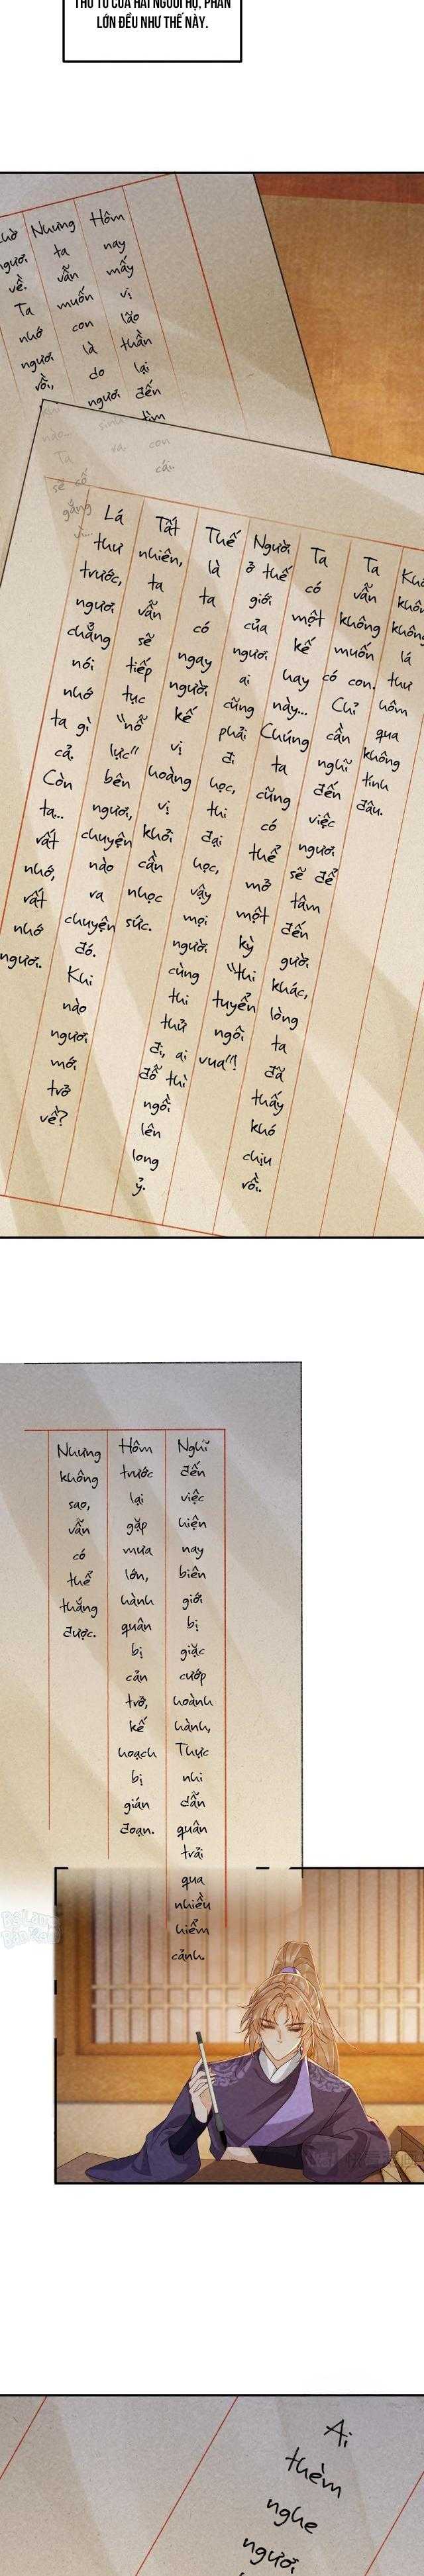 THƯ TỪ CỦA HAI NGƯỜI HỌ, PHẦN
LỚN ĐỀU NHƯ THẾ NÀY.
Hôm nay mấy vị lão thần lại đến tìm con cái.
Nhưng ta vẫn muốn con là do ngươi sinh ra.
ngươi về. Ta nhớ ngươi rồi,
nào... Ta sẽ cố gắng
không không lá thư hôm qua không tính đâu.
Ta vẫn không muốn có con. Chỉ cần nghĩ đến việc ngươi sẽ để tâm đến gười khác, lòng ta đã thấy khó chịu rồi.
Ta có một kế hay này... Chúng ta cũng có thể mở một kỳ “thi tuyển ngôi vua”!
Người ở thế giới của ngươi ai cũng phải đi học, thi đại học, vậy mọi người cùng thi thử đi, ai đỗ thì ngồi lên long ỷ.
Thế là ta có ngay người kế vị hoàng vị khỏi cần nhọc sức.
Tất nhiên, ta vẫn sẽ tiếp tục “nỗ lực” bên ngươi, chuyện nào ra chuyện đó. Khi nào ngươi mới trở về?
Lá thư trước, ngươi chẳng nói nhớ ta gì cả. Còn ta... rất nhớ, rất nhớ ngươi.
Nghĩ đến việc hiện nay biên giới bị giặc cướp hoành hành, Thực nhi dẫn quân trải qua nhiều hiểm cảnh.
Hôm trước lại gặp mưa lớn, hành quân bị cản trở, kế hoạch bị gián đoạn.
Nhưng không sao, vẫn có thể thắng được.
Ai thèm nghe ngươi